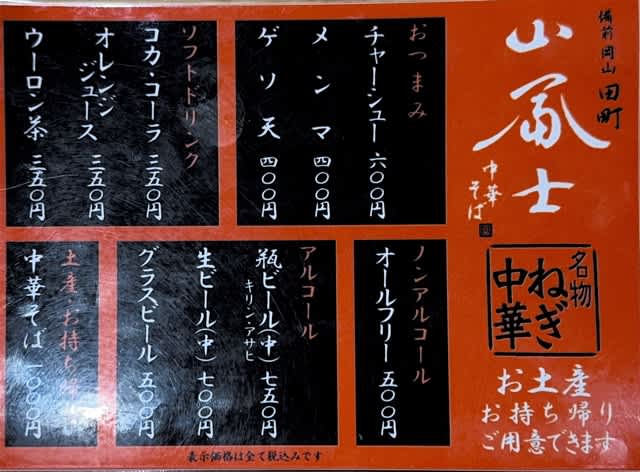 備前岡山 田町
山冨士
中華そば
名物
ねぎ
中華
お土産
お持ち帰り
ご用意できます
おつまみ
チャーシュー 六〇〇円
メンマ 四〇〇円
ゲソ天 四〇〇円
ソフトドリンク
コカ・コーラ 三五〇円
オレンジ
ジュース 三五〇円
ウーロン茶 三五〇円
ノンアルコール
オールフリー 五〇〇円
アルコール
瓶ビール(中) 七五〇円
キリン・アサヒ
生ビール(中) 七〇〇円
グラスビール 五〇〇円
土産・お持ち帰
中華そば 一〇〇〇円
表示価格は全て税込みです